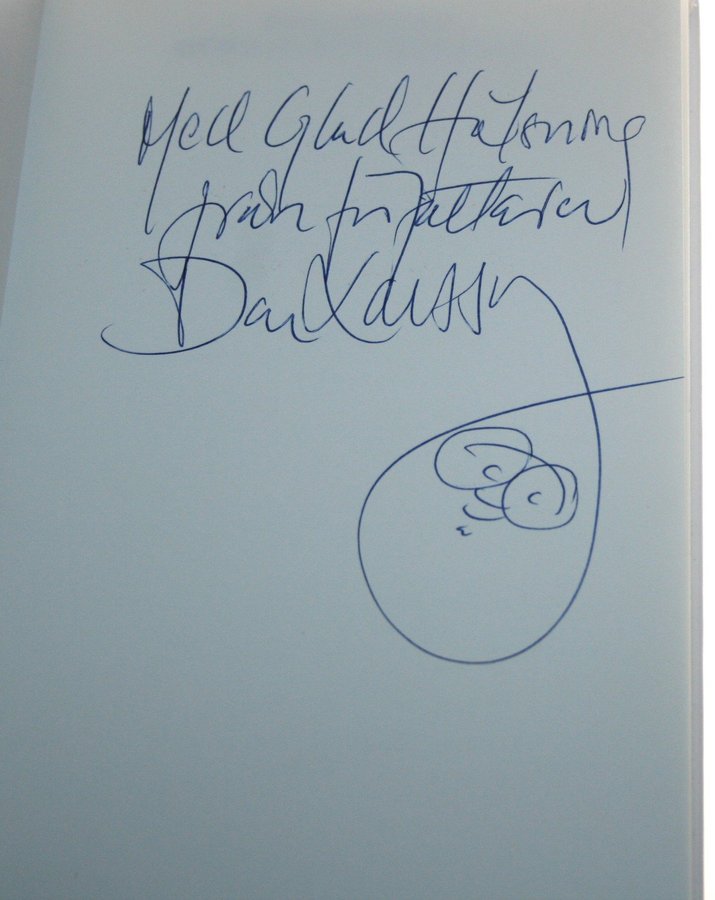 Med Glad Hälsning
från författaren
Dan Larsson